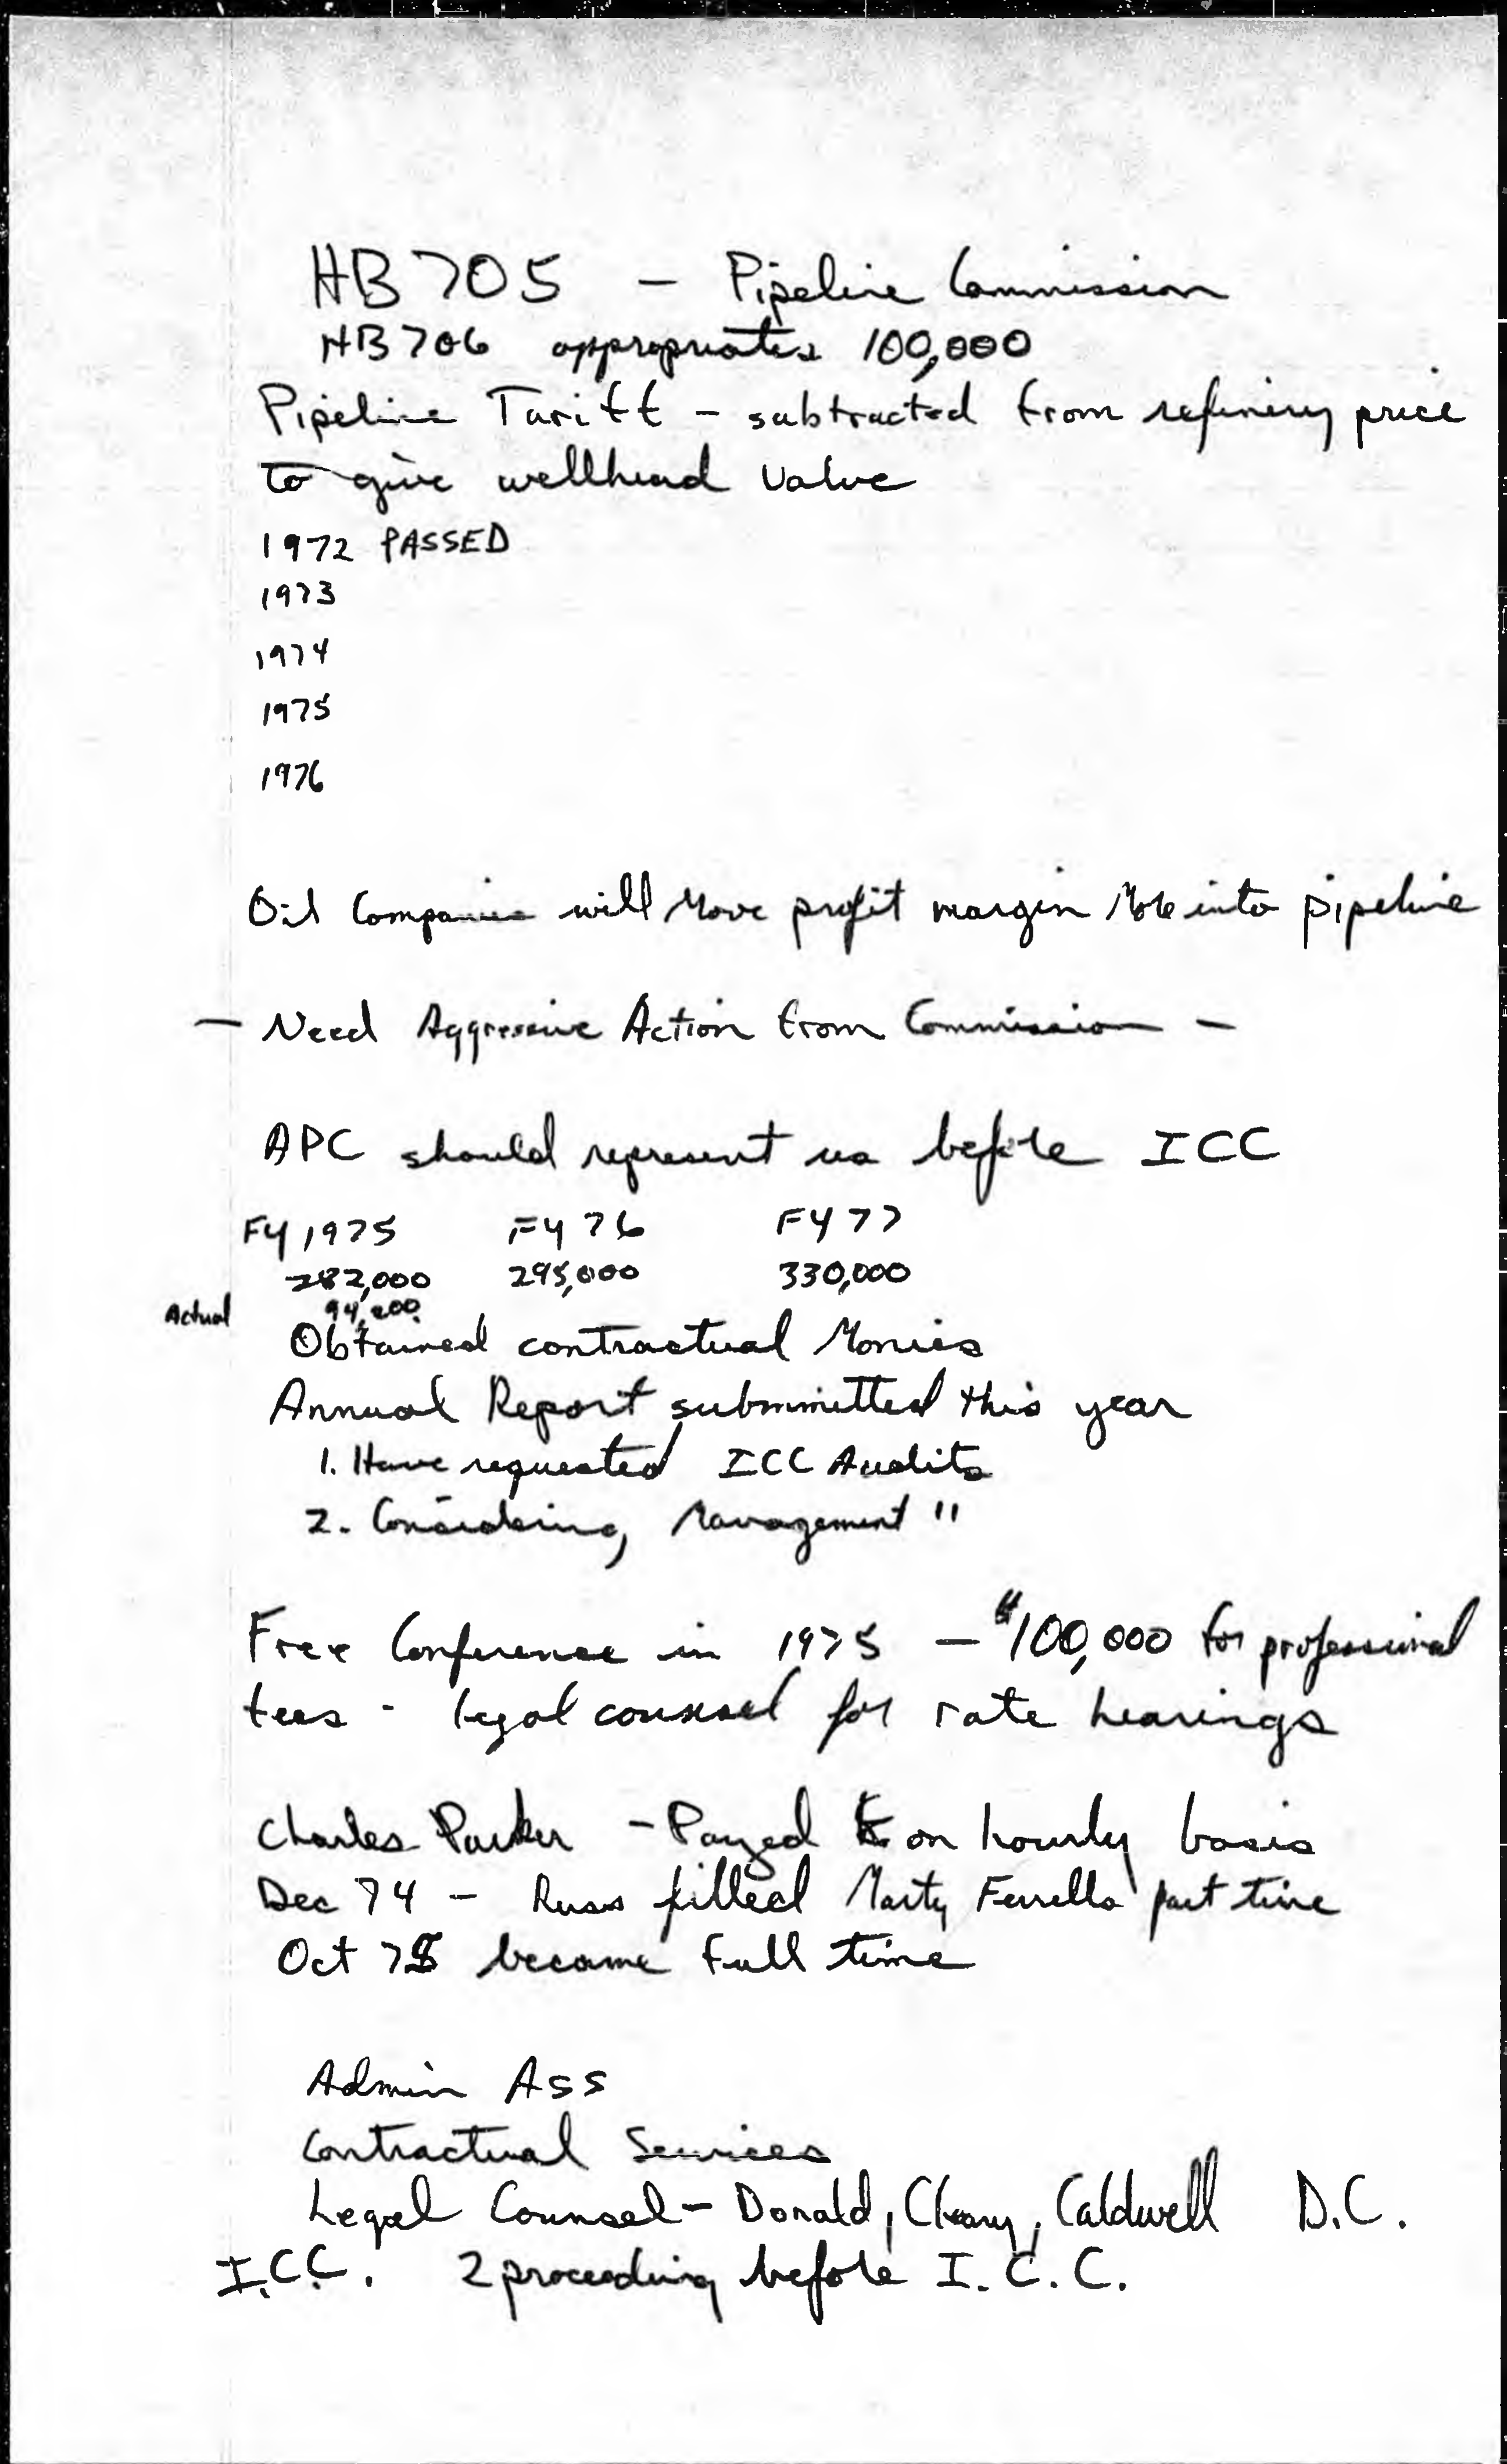 HB 705 - Pipeline Commission
HB 706 appropriates 100,000
Pipeline Tariff - subtracted from refinery price
to give wellhead value
1972 PASSED
1973
1974
1975
1976
Oil Companies will Move profit margin More into pipeline
- Need Aggressive Action from Commission -
APC should represent us before ICC
FY 1975 FY 76 FY 77
282,000 295,000 330,000
Actual 94,200
Obtained contractual Monies
Annual Report submmitted this year
1. Have requested ICC Audits
2. Considering Management "
Free Conference in 1975 - $100,000 for professional
fees - legal counsel for rate hearings
Charles Parker - Payed on hourly basis
Dec 74 - Russ filled Marty Ferrells part time
Oct 75 became full time
Admin Ass
Contractual Services
Legal Counsel - Donald, Cleary, Caldwell D.C.
I.C.C. 2 proceeding before I.C.C.